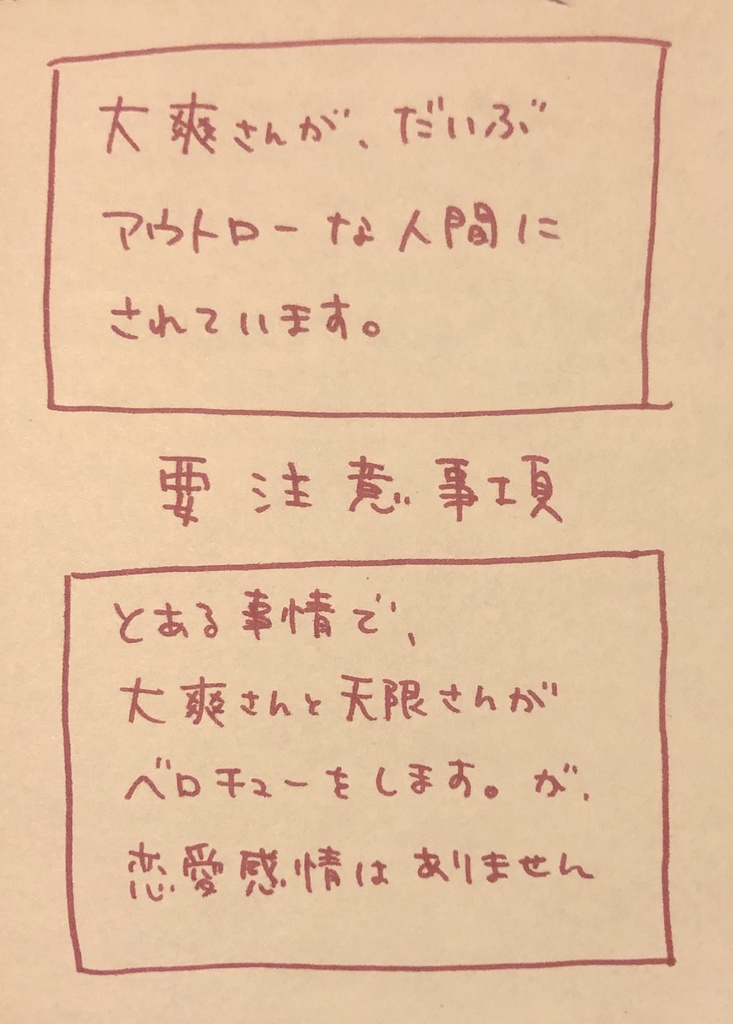 大爽さんが、だいぶ
アウトローな人間に
されています。
要注意事項
とある事情で、
大爽さんと天限さんが
ベロチューをします。が、
恋愛感情はありません